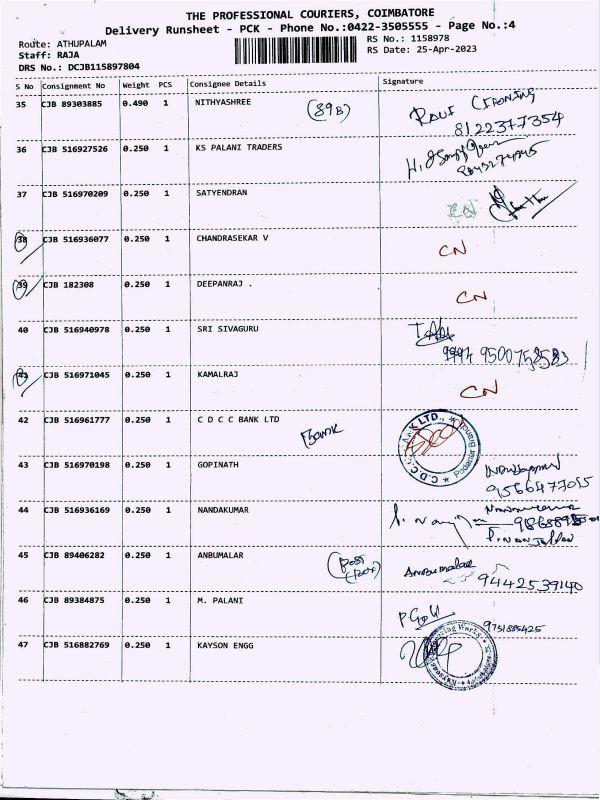 THE PROFESSIONAL COURIERS, COIMBATORE
Delivery Runsheet - PCK - Phone No.:0422-3505555 - Page No.:4
Route: ATHUPALAM
Staff: RAJA
DRS No.: DCJB115897804
RS No.: 1158978
RS Date: 25-Apr-2023
S No Consignment No Weight PCS Consignee Details Signature
35 CJB 89303885 0.490 1 NITHYASHREE (89B)
8122377354
36 CJB 516927526 0.250 1 KS PALANI TRADERS
37 CJB 516970209 0.250 1 SATYENDRAN
38 CJB 516936077 0.250 1 CHANDRASEKAR V CN
39 CJB 182308 0.250 1 DEEPANRAJ . CN
40 CJB 516940978 0.250 1 SRI SIVAGURU
41 CJB 516971045 0.250 1 KAMALRAJ CN
42 CJB 516961777 0.250 1 C D C C BANK LTD Bank
43 CJB 516970198 0.250 1 GOPINATH
44 CJB 516936169 0.250 1 NANDAKUMAR
45 CJB 89406282 0.250 1 ANBUMALAR Anbumalar
9442539140
46 CJB 89384875 0.250 1 M. PALANI
47 CJB 516882769 0.250 1 KAYSON ENGG